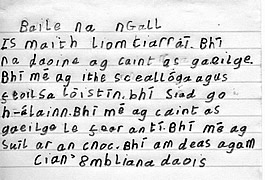 Baile na nGall
Is maith liom tiarraí. Bhí
na daoine ag caint as gaeilge.
Bhí mé ag ithe sceallóga agus
feoil sa lóistín. bhí siad go
h-álainn. Bhí mé ag caint as
gaeilge le fear an tí. Bhí mé ag
suil ar an cnoc. Bhí am deas agam
Cian 8 mbliana daois